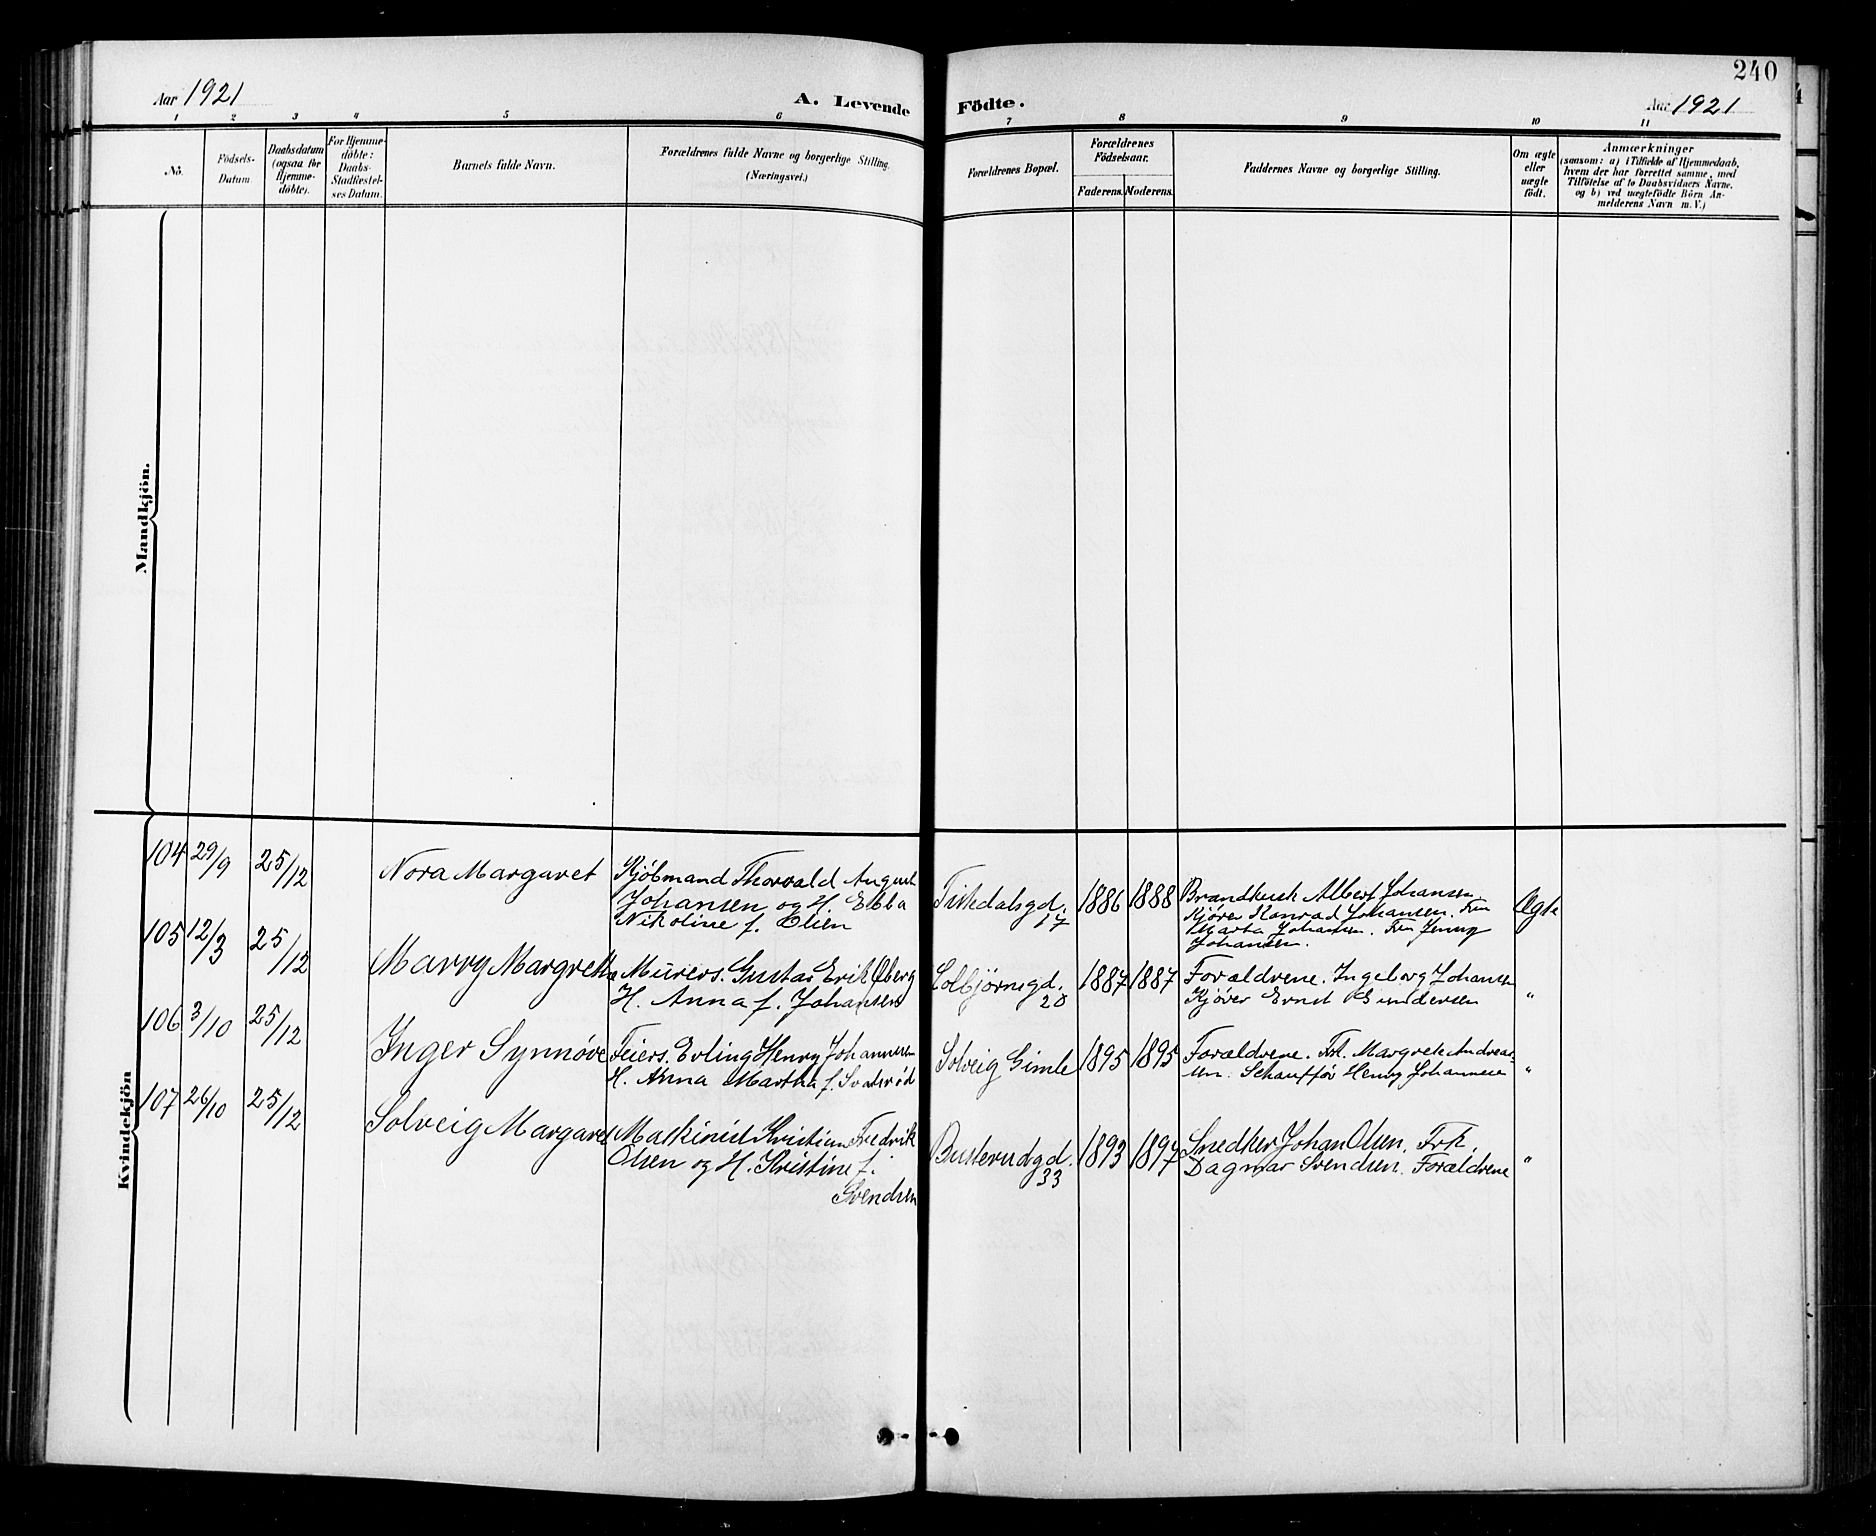 240
Aar 1921 A. Levende Födte. Aar 1921
1 2 3 4 5 6 7 8 9 10 11
No.
Födsels-
Datum
Daabsdatum
(ogsaa for
Hjemme-
døbte).
For Hjemme-
døbte:
Daabs-
Stadfæstel-
ses Datum.
Barnets fulde Navn.
Forældrenes fulde Navne og borgerlige Stilling.
(Næringsvei.)
Forældrenes Bopæl.
Forældrenes
Födselsaar.
Faderens.
Moderens.
Faddernes Navne og borgerlige Stilling.
Om ægte
eller
uægte
födt.
Anmærkninger
(saasom: a) i Tilfælde af Hjemmedaab,
hvem der har forrettet samme, med
Tilföielse af to Daabsvidners Navne,
og b) ved uægtefödte Börn An-
melderens Navn m. V.)
Mandkjön.
Kvindekjön
104 29/9 25/12 Nora Margaret
Kjøbmand Thorvald August
Johansen og H. Ebba
Nikoline f. Elien
Tistedalsgd.
17
1886 1888
Brandkusk Albert Johansen
Kjører Konrad Johansen. Fru
Marta Johansen. Fru Jenny
Johansen.
Ægte
105 12/3 25/12 Marry Margrethe
Murers. Gustav Erik Øberg
H. Anna f. Johansen
Colbjørnsgd.
20
1887 1887
Forældrene. Ingeborg Johansen
Kjører Ernst Gundersen
"
106 3/10 25/12 Inger Synnøve
Feiers. Erling Henry Johannesen
H. Anna Martha f. Svalerød
Solveig Gimle
1895 1895
Forældrene. Frk. Margrete Andreas-
sen. Schauffør Henry Johannesen
"
107 26/10 25/12 Solveig Margaret
Maskinist Kristian Fredrik
Olsen og H. Kristine f.
Svendsen
Busterudgd.
33
1893 1897
Snedker Johan Olsen. Frk.
Dagmar Svendsen. Forældrene
"